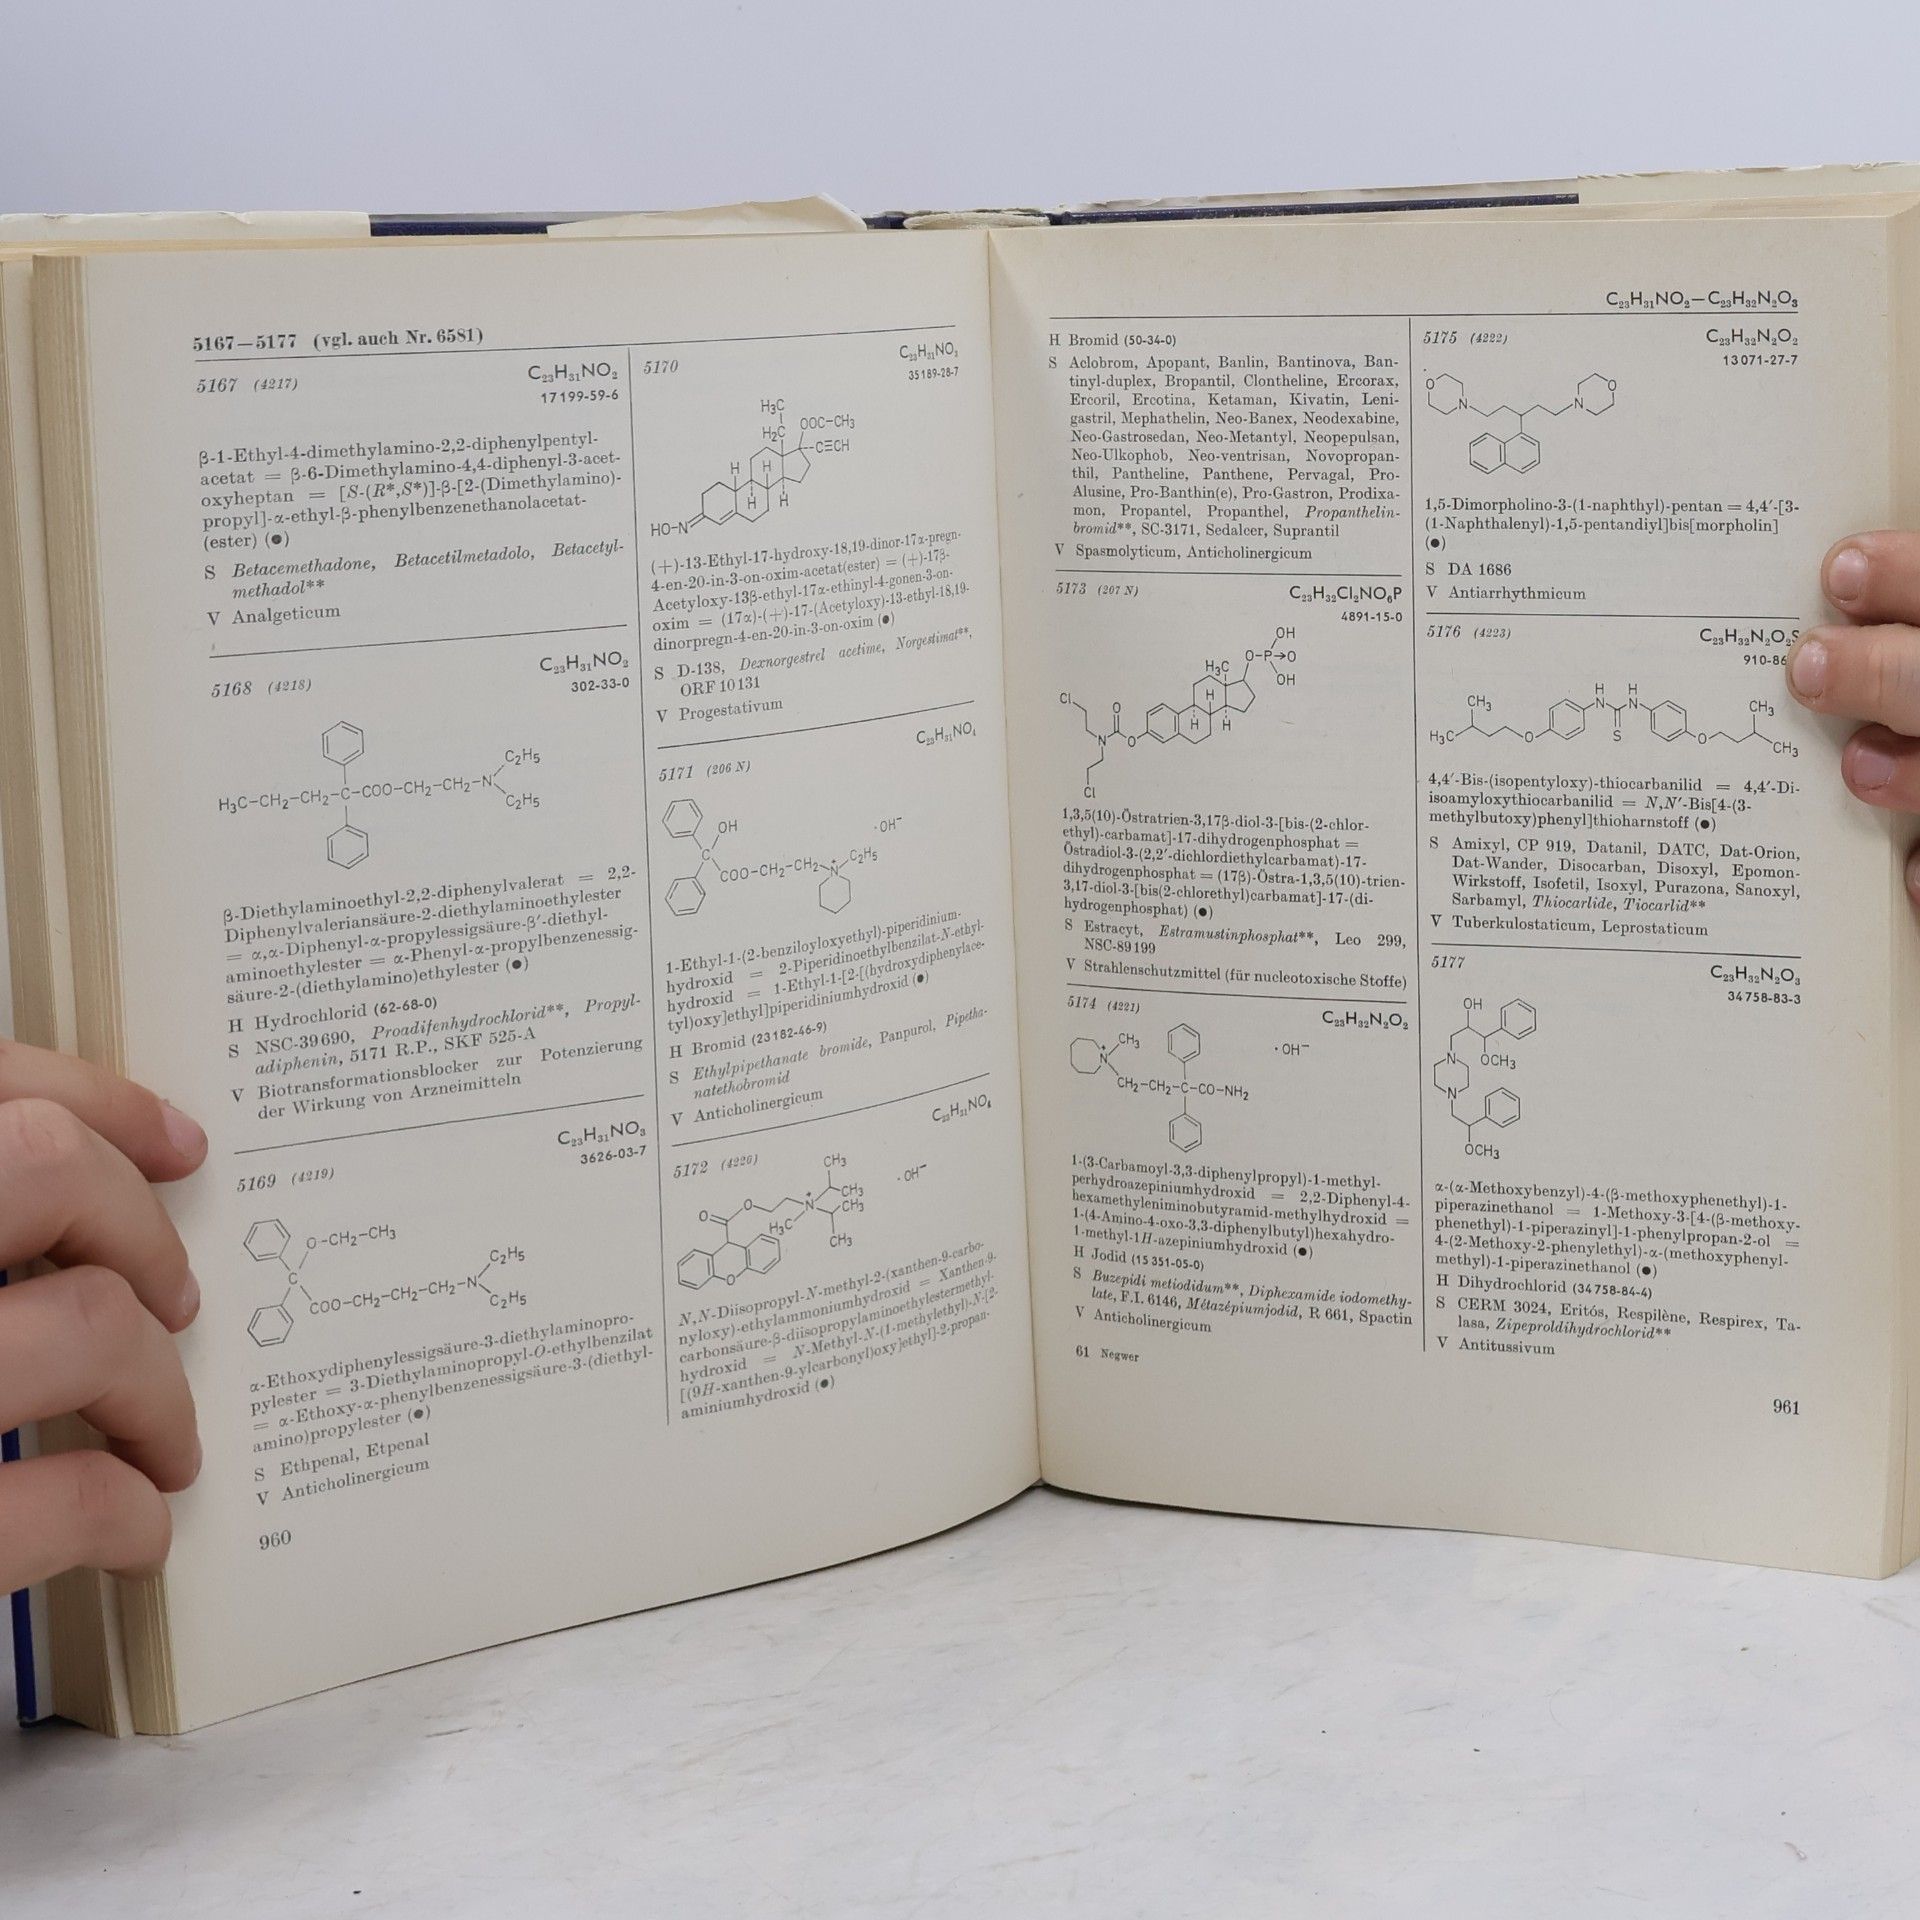 5167—5177 (vgl. auch Nr. 6581)
5167 (4217) C₂₃H₃₁NO₂
17199-59-6
β-1-Ethyl-4-dimethylamino-2,2-diphenylpentyl-
acetat = β-6-Dimethylamino-4,4-diphenyl-3-acet-
oxyheptan = [S-(R*,S*)]-β-[2-(Dimethylamino)-
propyl]-α-ethyl-β-phenylbenzenethanolacetat-
(ester) (●)
S Betacemethadone, Betacetilmetadolo, Betacetyl-
methadol**
V Analgeticum
5168 (4218) C₂₃H₃₁NO₂
302-33-0
H₃C–CH₂–CH₂–C–COO–CH₂–CH₂–N
C₂H₅
C₂H₅
β-Diethylaminoethyl-2,2-diphenylvalerat = 2,2-
Diphenylvaleriansäure-2-diethylaminoethylester
= α,α-Diphenyl-α-propylessigsäure-β′-diethyl-
aminoethylester = α-Phenyl-α-propylbenzenessig-
säure-2-(diethylamino)ethylester (●)
H Hydrochlorid (62-68-0)
S NSC-39690, Proadifenhydrochlorid**, Propyl-
adiphenin, 5171 R.P., SKF 525-A
V Biotransformationsblocker zur Potenzierung
der Wirkung von Arzneimitteln
5169 (4219) C₂₃H₃₁NO₃
3626-03-7
O–CH₂–CH₃
C
COO–CH₂–CH₂–CH₂–N
C₂H₅
C₂H₅
α-Ethoxydiphenylessigsäure-3-diethylaminopro-
pylester = 3-Diethylaminopropyl-O-ethylbenzilat
= α-Ethoxy-α-phenylbenzenessigsäure-3-(diethyl-
amino)propylester (●)
S Ethpenal, Etpenal
V Anticholinergicum
960
5170 C₂₃H₃₁NO₃
35189-28-7
H₃C
H₂C
OOC–CH₃
C≡CH
H
H
H
H
HO–N
(+)-13-Ethyl-17-hydroxy-18,19-dinor-17α-pregn-
4-en-20-in-3-on-oxim-acetat(ester) = (+)-17β-
Acetyloxy-13β-ethyl-17α-ethinyl-4-gonen-3-on-
oxim = (17α)-(+)-17-(Acetyloxy)-13-ethyl-18,19-
dinorpregn-4-en-20-in-3-on-oxim (●)
S D-138, Dexnorgestrel acetime, Norgestimat**,
ORF 10131
V Progestativum
5171 (206 N) C₂₃H₃₁NO₄
OH
C
COO–CH₂–CH₂–N⁺
C₂H₅
·OH⁻
1-Ethyl-1-(2-benziloyloxyethyl)-piperidinium-
hydroxid = 2-Piperidinoethylbenzilat-N-ethyl-
hydroxid = 1-Ethyl-1-[2-[(hydroxydiphenylace-
tyl)oxy]ethyl]piperidiniumhydroxid (●)
H Bromid (23182-46-9)
S Ethylpipethanate bromide, Panpurol, Pipetha-
natethobromid
V Anticholinergicum
5172 (4220)
CH₃
·OH⁻
O
O
CH₃
CH₃
N⁺
H₃C
CH₃
O
N,N-Diisopropyl-N-methyl-2-(xanthen-9-carbo-
nyloxy)-ethylammoniumhydroxid = Xanthen-9-
carbonsäure-β-diisopropylaminoethylestermethyl-
hydroxid = N-Methyl-N-(1-methylethyl)-N-[2-
[(9H-xanthen-9-ylcarbonyl)oxy]ethyl]-2-propan-
aminiumhydroxid (●)
C₂₃H₃₁NO₂—C₂₃H₃₂N₂O₃
H Bromid (50-34-0)
S Aclobrom, Apopant, Banlin, Bantinova, Ban-
tinyl-duplex, Bropantil, Clontheline, Ercorax,
Ercoril, Ercotina, Ketaman, Kivatin, Leni-
gastril, Mephathelin, Neo-Banex, Neodexabine,
Neo-Gastrosedan, Neo-Metantyl, Neopepulsan,
Neo-Ulkophob, Neo-ventrisan, Novopropan-
thil, Pantheline, Panthene, Pervagal, Pro-
Alusine, Pro-Banthin(e), Pro-Gastron, Prodixa-
mon, Propantel, Propanthel, Propanthelin-
bromid**, SC-3171, Sedalcer, Suprantil
V Spasmolyticum, Anticholinergicum
5173 (207 N) C₂₃H₃₂Cl₂NO₆P
4891-15-0
OH
O–P→O
OH
H₃C
H
H
H
Cl
O
N
O
Cl
1,3,5(10)-Östratrien-3,17β-diol-3-[bis-(2-chlor-
ethyl)-carbamat]-17-dihydrogenphosphat =
Östradiol-3-(2,2′-dichlordiethylcarbamat)-17-
dihydrogenphosphat = (17β)-Östra-1,3,5(10)-trien-
3,17-diol-3-[bis(2-chlorethyl)carbamat]-17-(di-
hydrogenphosphat) (●)
S Estracyt, Estramustinphosphat**, Leo 299,
NSC-89199
V Strahlenschutzmittel (für nucleotoxische Stoffe)
5174 (4221) C₂₃H₃₂N₂O₂
N⁺
CH₃
·OH⁻
CH₂–CH₂–C–CO–NH₂
1-(3-Carbamoyl-3,3-diphenylpropyl)-1-methyl-
perhydroazepiniumhydroxid = 2,2-Diphenyl-4-
hexamethyleniminobutyramid-methylhydroxid =
1-(4-Amino-4-oxo-3,3-diphenylbutyl)hexahydro-
1-methyl-1H-azepiniumhydroxid (●)
H Jodid (15351-05-0)
S Buzepidi metiodidum**, Diphexamide iodomethy-
late, F.I. 6146, Métazépiumjodid, R 661, Spactin
V Anticholinergicum
61 Negwer
5175 (4222) C₂₃H₃₂N₂O₂
13071-27-7
O
N
N
O
1,5-Dimorpholino-3-(1-naphthyl)-pentan = 4,4′-[3-
(1-Naphthalenyl)-1,5-pentandiyl]bis[morpholin]
(●)
S DA 1686
V Antiarrhythmicum
5176 (4223) C₂₃H₃₂N₂O₂S
910-86
CH₃
H₃C
O
H
N
S
H
N
O
CH₃
CH₃
4,4′-Bis-(isopentyloxy)-thiocarbanilid = 4,4′-Di-
isoamyloxythiocarbanilid = N,N′-Bis[4-(3-
methylbutoxy)phenyl]thioharnstoff (●)
S Amixyl, CP 919, Datanil, DATC, Dat-Orion,
Dat-Wander, Disocarban, Disoxyl, Epomon-
Wirkstoff, Isofetil, Isoxyl, Purazona, Sanoxyl,
Sarbamyl, Thiocarlide, Tiocarlid**
V Tuberkulostaticum, Leprostaticum
5177 C₂₃H₃₂N₂O₃
34758-83-3
OH
OCH₃
N
N
OCH₃
α-(α-Methoxybenzyl)-4-(β-methoxyphenethyl)-1-
piperazinethanol = 1-Methoxy-3-[4-(β-methoxy-
phenethyl)-1-piperazinyl]-1-phenylpropan-2-ol =
4-(2-Methoxy-2-phenylethyl)-α-(methoxyphenyl-
methyl)-1-piperazinethanol (●)
H Dihydrochlorid (34758-84-4)
S CERM 3024, Eritós, Respilène, Respirex, Ta-
lasa, Zipeproldihydrochlorid**
V Antitussivum
961